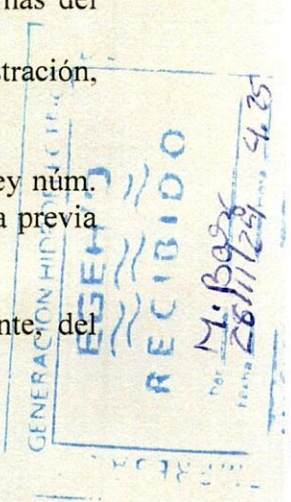 nas del
stración,
ey núm.
a previa
nte, del
GENERACIÓN HIDROELÉCTRICA
EGEHID
RECIBIDO
Por M. Báez
Fecha 26/11/24 Hora 4:25